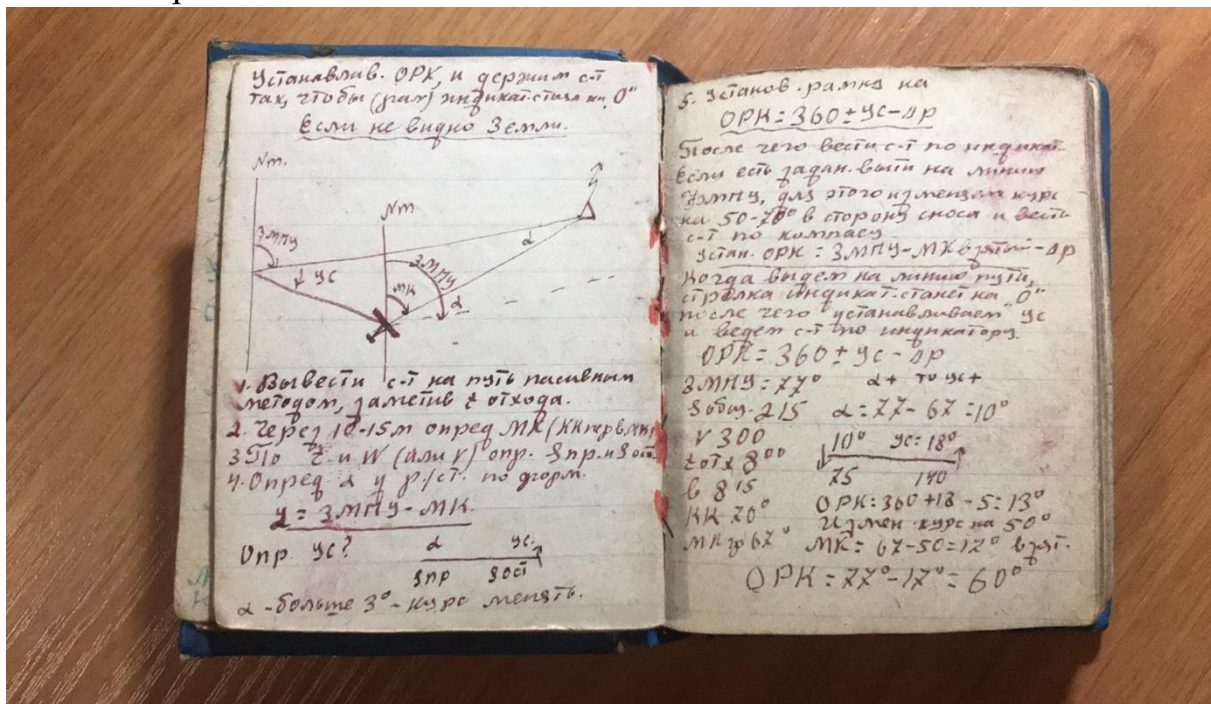 Устанавлив. ОРК, и держим с-т
так, чтобы (рах) индикат. стала на „0"
Если не видно Земли.
Nм.
Nм
ЗМПУ
УС
МК
ЗМПУ
α
α
1. Вывести с-т на путь пасивным
методом, заметив t отхода.
2. Через 10-15м опред МК
3 По t и W (или V) опр. Sпр. и Sост.
4. Опред α у р/ст. по форм.
= ЗМПУ-МК.
Опр. УС?
α УС.
Sпр Sост
α - больше 3° - курс менять.
5. Установ. рамку на
ОРК = 360 ± УС - Δр
После чего вести с-т по индикат.
Если есть задан. выйти на линию
ЗМПУ, для этого изменяем курс
на 50-70° в сторону сноса и вести
с-т по компасу
Устан. ОРК = ЗМПУ-МК взятый-Δр
Когда выдем на линию пути,
стрелка индикат. станет на „0"
после чего устанавливаем УС
и ведем с-т по индикатору.
ОРК = 360 ± УС - Δр
ЗМПУ = 77° α + то УС +
Sобщ. 215 α = 77 - 67 = 10°
V 300
10° УС = 18°
t отх 8⁰⁰
75 140
в 8 15
ОРК = 360 + 18 - 5 = 13°
КК 70°
Измен. курс на 50°
МКпр 67° МК = 67-50 = 17° взят.
ОРК = 77° - 17° = 60°